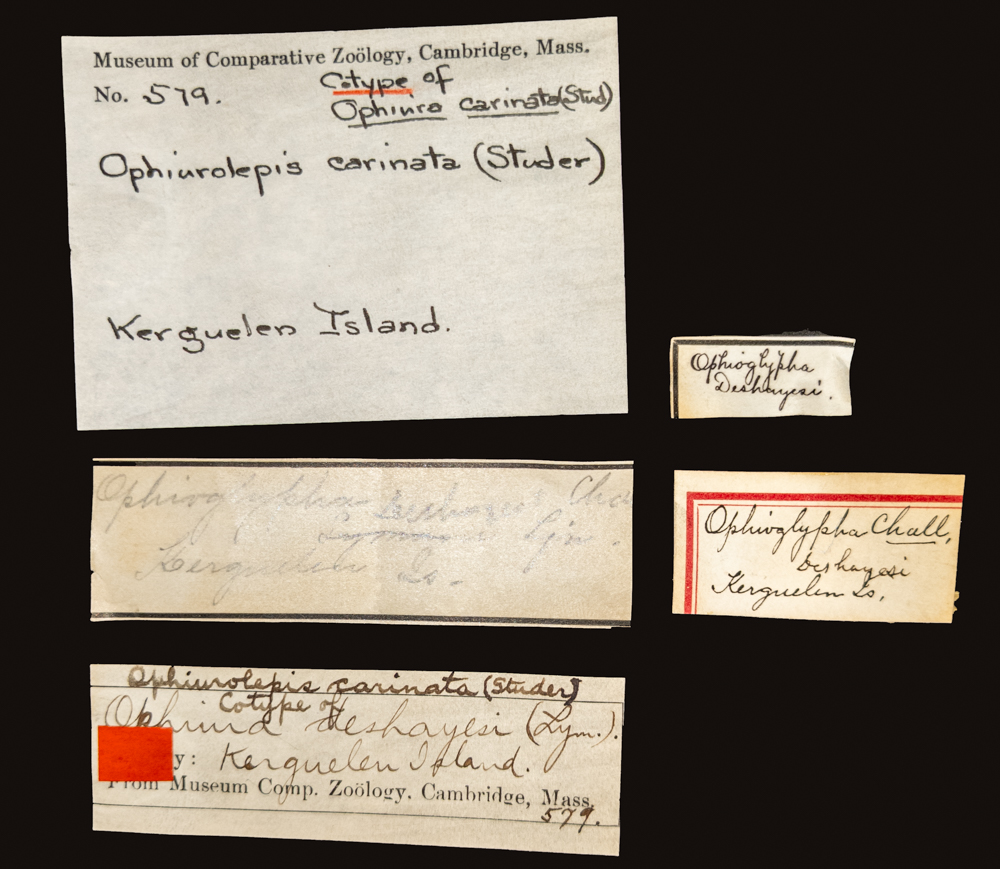 Museum of Comparative Zoölogy, Cambridge, Mass.
No. 579. Cotype of
Ophiura carinata (Stud)
Ophiurolepis carinata (Studer)
Kerguelen Island.
Ophioglypha
Deshayesi.
Ophioglypha deshayesi Cha
Lym.
Kerguelen Is.
Ophioglypha Chall,
Deshayesi
Kerguelen Is,
Ophiurolepis carinata (Studer)
Cotype of
Ophiura deshayesi (Lym.).
y: Kerguelen Island.
From Museum Comp. Zoölogy, Cambridge, Mass.
579.